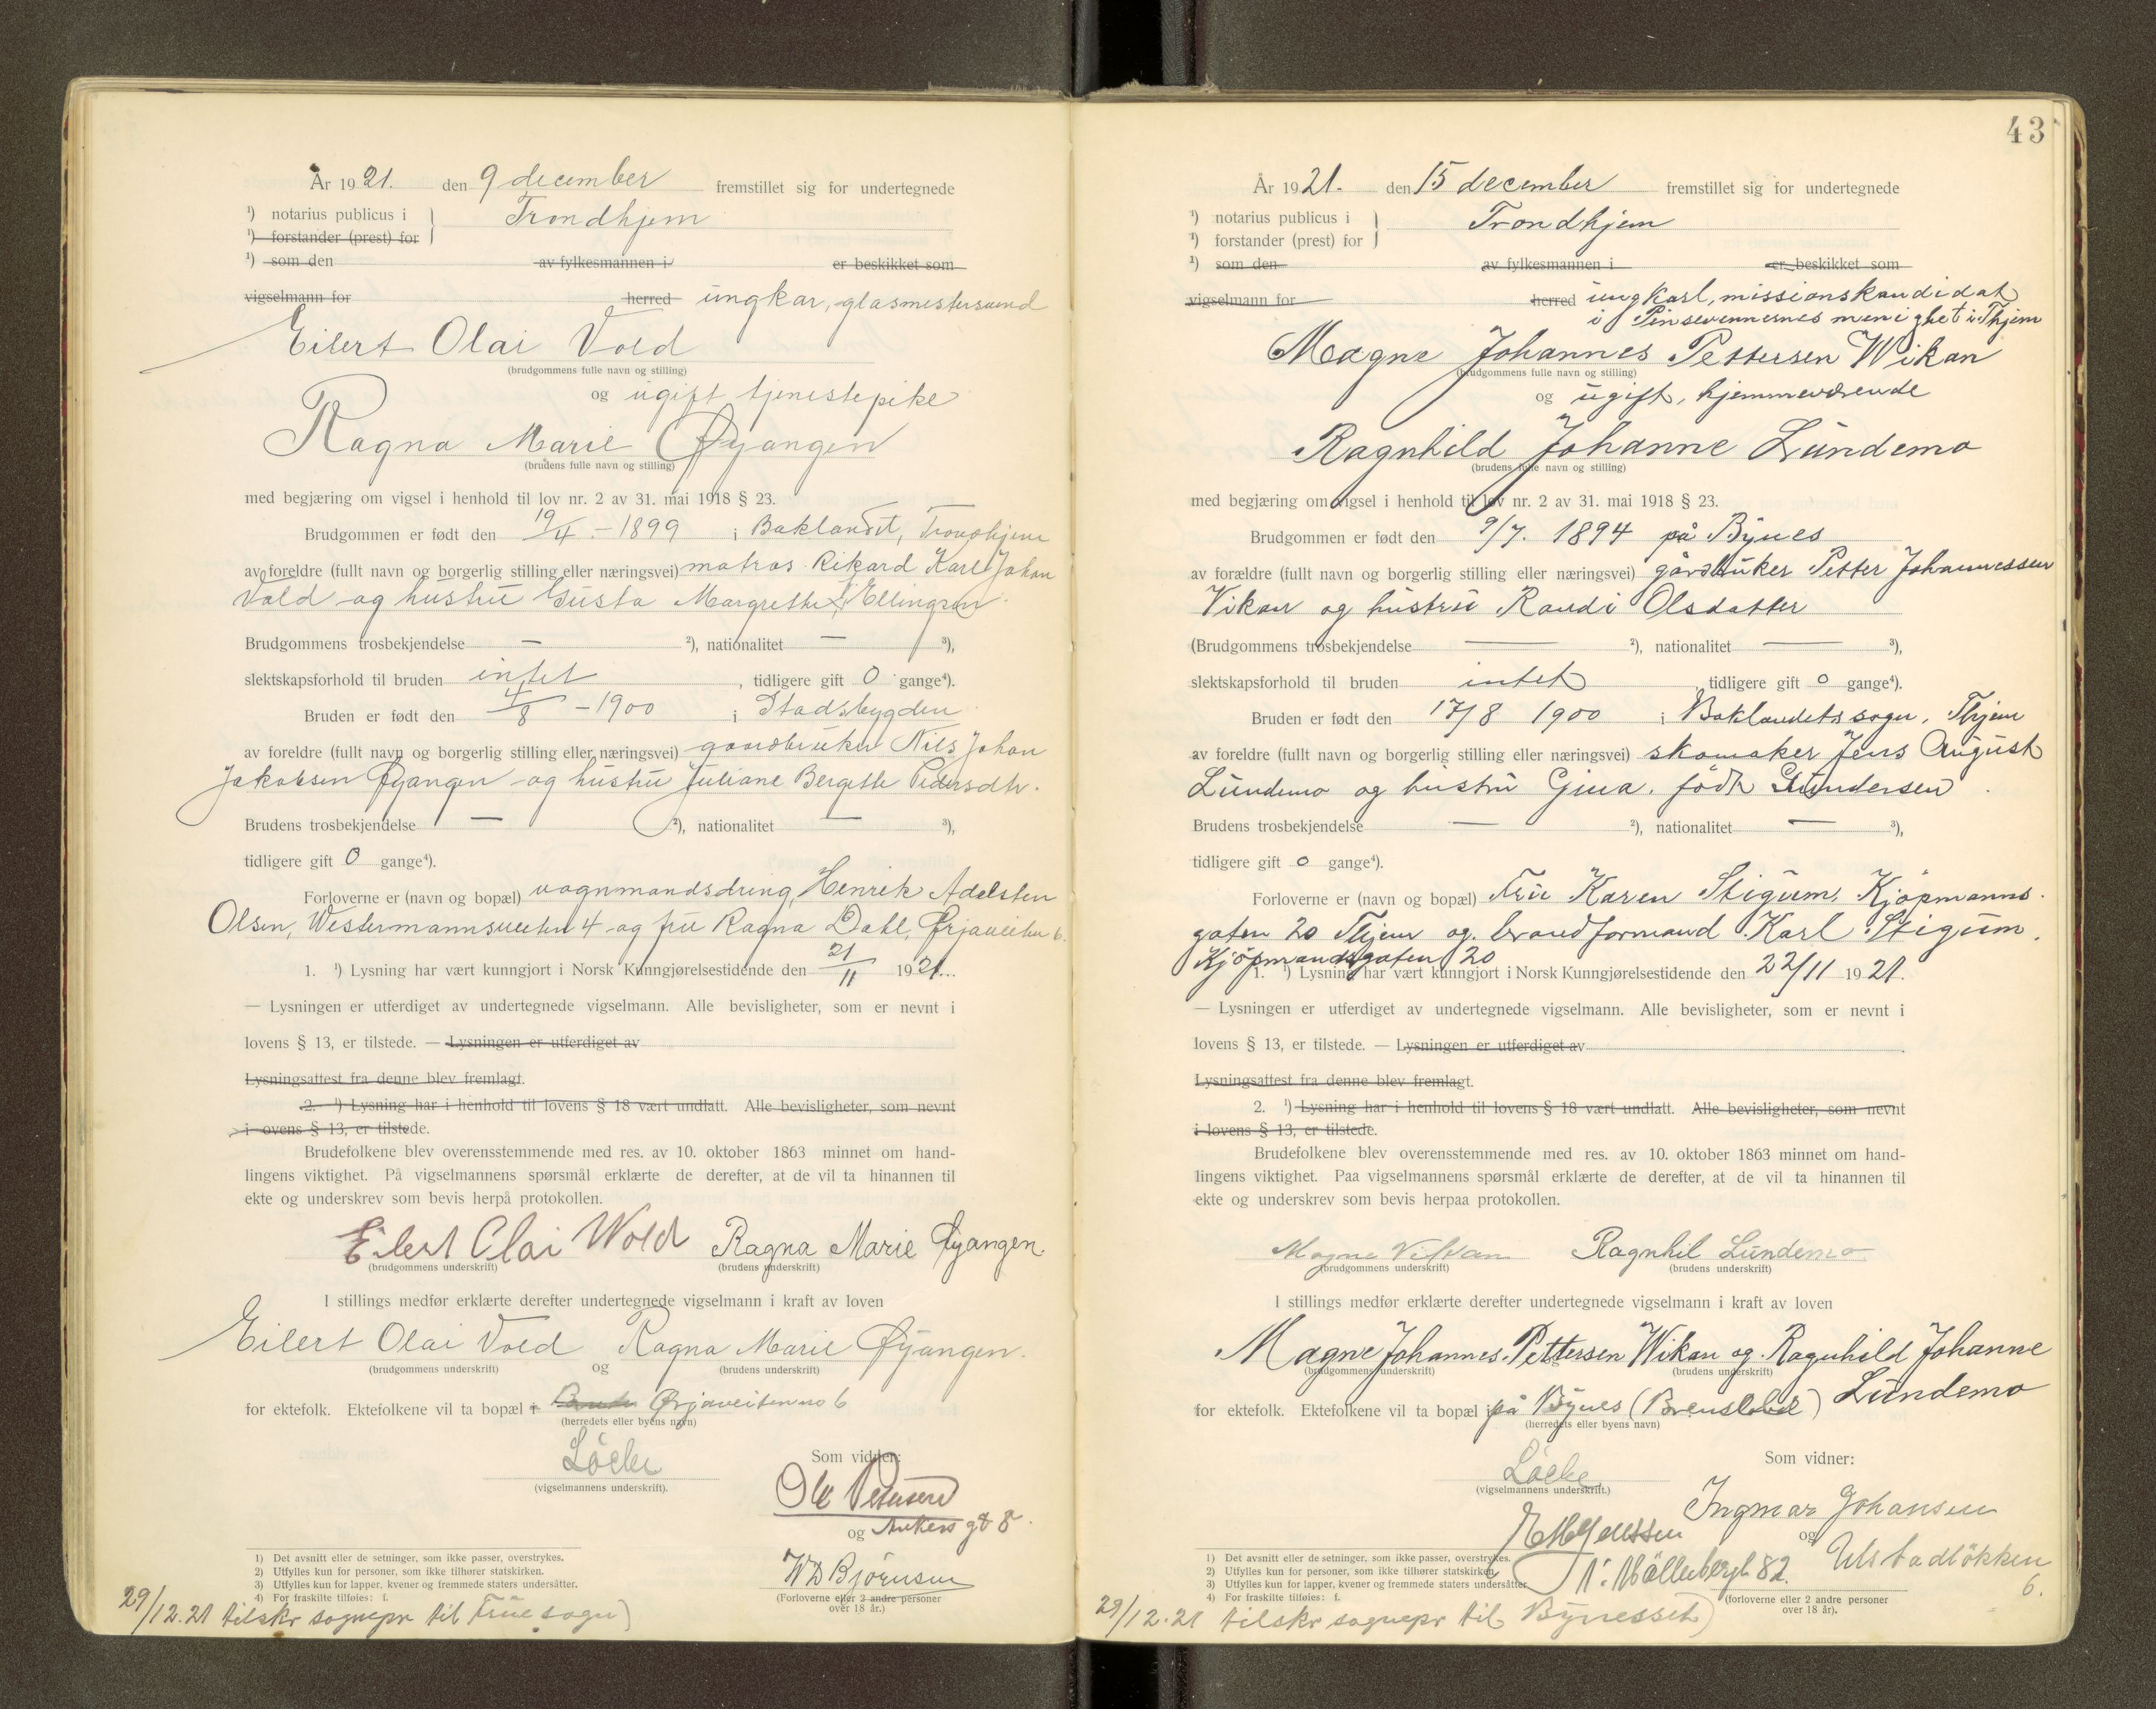 År 1921. den 9 december fremstillet sig for undertegnede
¹) notarius publicus i } Trondhjem
¹) forstander (prest) for
¹) som den av fylkesmannen i er beskikket som
vigselmann for herred ungkar, glasmestersvend
Eilert Olai Vold
(brudgommens fulle navn og stilling)
og ugift tjenestepike
Ragna Marie Øyangen
(brudens fulle navn og stilling)
med begjæring om vigsel i henhold til lov nr. 2 av 31. mai 1918 § 23.
Brudgommen er født den 19/4 - 1899 i Baklandet, Trondhjem
av foreldre (fullt navn og borgerlig stilling eller næringsvei) matros Rikard Karl Johan
Vold og hustru Gusta Margrethe Ellingsen
Brudgommens trosbekjendelse — ²), nationalitet — ³),
slektskapsforhold til bruden intet, tidligere gift 0 gange⁴).
Bruden er født den 4/8 - 1900 i Stadsbygden
av foreldre (fullt navn og borgerlig stilling eller næringsvei) gaardbruker Nils Johan
Jakobsen Øyangen og hustru Juliane Bergitte Pedersdtr.
Brudens trosbekjendelse — ²), nationalitet — ³),
tidligere gift 0 gange⁴).
Forloverne er (navn og bopæl) vognmandsdreng, Henrik Adelsten
Olsen, Westermannsveiten 4 og fru Ragna Dahl, Ørjaveiten 6.
1. ¹) Lysning har vært kunngjort i Norsk Kunngjørelsestidende den 21/11 1921.
— Lysningen er utferdiget av undertegnede vigselmann. Alle bevisligheter, som er nevnt i
lovens § 13, er tilstede. — Lysningen er utferdiget av
Lysningsattest fra denne blev fremlagt.
2. ¹) Lysning har i henhold til lovens § 18 vært undlatt. Alle bevisligheter, som nevnt
i lovens § 13, er tilstede.
Brudefolkene blev overensstemmende med res. av 10. oktober 1863 minnet om hand-
lingens viktighet. På vigselmannens spørsmål erklærte de derefter, at de vil ta hinannen til
ekte og underskrev som bevis herpå protokollen.
Eilert Olai Wold Ragna Marie Øyangen.
(brudgommens underskrift) (brudens underskrift)
I stillings medfør erklærte derefter undertegnede vigselmann i kraft av loven
Eilert Olai Vold Ragna Marie Øyangen.
(brudgommens underskrift) og (brudens underskrift)
for ektefolk. Ektefolkene vil ta bopæl i Ørjaveiten no 6
(herredets eller byens navn)
Løcke Som vidner:
(vigselmannens underskrift).
Ole Petersen
og Ankers gt 8.
W D Bjørnsen
(Forloverne eller 2 andre personer
over 18 år.)
1) Det avsnitt eller de setninger, som ikke passer, overstrykes.
2) Utfylles kun for personer, som ikke tilhører statskirken.
3) Utfylles kun for lapper, kvener og fremmede staters undersåtter.
4) For fraskilte tilføies: f.
29/12.21 tilskr sognepr til Frue sogn)
43
År 1921. den 15 december fremstillet sig for undertegnede
¹) notarius publicus i } Trondhjem
¹) forstander (prest) for
¹) som den av fylkesmannen i er beskikket som
vigselmann for herred ungkarl, missionskandidat
i Pinsevennernes menighet i Thjem
Magne Johannes Pettersen Wikan
(brudgommens fulle navn og stilling)
og ugift, hjemmeværende
Ragnhild Johanne Lundemo
(brudens fulle navn og stilling)
med begjæring om vigsel i henhold til lov nr. 2 av 31. mai 1918 § 23.
Brudgommen er født den 9/7. 1894 på Bynes
av forældre (fullt navn og borgerlig stilling eller næringsvei) gårdbruker Petter Johannessen
Vikan og hustru Randi Olsdatter
(Brudgommens trosbekjendelse — ²), nationalitet — ³),
slektskapsforhold til bruden intet tidligere gift 0 gange⁴).
Bruden er født den 17/8 1900 i Baklandets sogn, Thjem
av foreldre (fullt navn og borgerlig stilling eller næringsvei) skomaker Jens August
Lundemo og hustru Gina, født Gundersen
Brudens trosbekjendelse — ²), nationalitet — ³),
tidligere gift 0 gange⁴).
Forloverne er (navn og bopæl) Frue Karen Stigum, Kjøpmanns-
gaten 20 Thjem og brandformand Karl Stigum,
Kjøpmandsgaten 20
1. ¹) Lysning har vært kunngjort i Norsk Kunngjørelsestidende den 22/11 1921.
— Lysningen er utferdiget av undertegnede vigselmann. Alle bevisligheter, som er nevnt i
lovens § 13, er tilstede. — Lysningen er utferdiget av
Lysningsattest fra denne blev fremlagt.
2. ¹) Lysning har i henhold til lovens § 18 vært undlatt. Alle bevisligheter, som nevnt
i lovens § 13, er tilstede.
Brudefolkene blev overensstemmende med res. av 10. oktober 1863 minnet om hand-
lingens viktighet. Paa vigselmannens spørsmål erklærte de derefter, at de vil ta hinannen til
ekte og underskrev som bevis herpaa protokollen.
Magne Vikan Ragnhil Lundemo
(brudgommens underskrift) (brudens underskrift)
I stillings medfør erklærte derefter undertegnede vigselmann i kraft av loven
Magne Johannes Pettersen Wikan og Ragnhild Johanne
(brudgommens underskrift) (brudens underskrift)
Lundemo
for ektefolk. Ektefolkene vil ta bopæl på Bynes
(herredets eller byens navn)
Løcke Som vidner:
(vigselmannens underskrift.)
Ingmar Johansen
og Ulstadløkken
6.
N. Møllebergt 82.
(forloverne eller 2 andre personer
over 18 år).
1) Det avsnitt eller de setninger, som ikke passer, overstrykes.
2) Utfylles kun for personer, som ikke tilhører statskirken.
3) Utfylles kun for lapper, kvener og fremmede staters undersåtter.
4) For fraskilte tilføies: f.
29/12.21 tilskr sognepr til Bynesset)